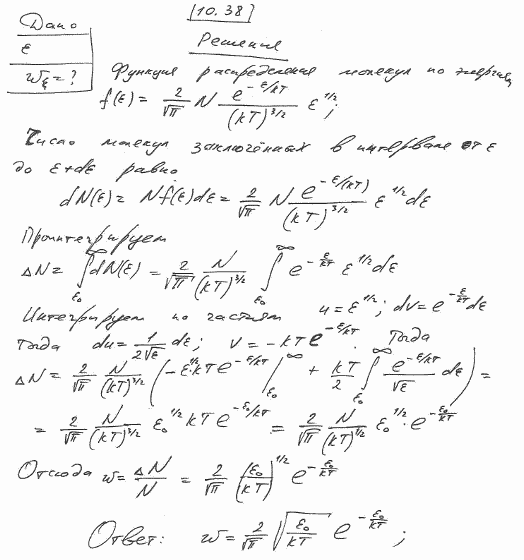 [10.38]
Дано
ε
w_ξ = ?
Решение
Функция распределения молекул по энергиям
f(ε) = 2/√π N e^(-ε/kT)/(kT)^(3/2) ε^(1/2);
Число молекул заключённых в интервале от ε
до ε+dε равно
dN(ε) = Nf(ε)dε = 2/√π N e^(-ε/(kT))/(kT)^(3/2) ε^(1/2) dε
Проинтегрируем
ΔN = ∫_(ε₀)^∞ dN(ε) = 2/√π N/(kT)^(3/2) ∫_(ε₀)^∞ e^(-ε/kT) ε^(1/2) dε
Интегрируем по частям u = ε^(1/2); dv = e^(-ε/kT) dε
тогда du = 1/(2√ε) dε; v = -kT e^(-ε/kT). Тогда
ΔN = 2/√π N/(kT)^(3/2) (-ε^(1/2) kT e^(-ε/kT) |_(ε₀)^∞ + kT/2 ∫_(ε₀)^∞ e^(-ε/kT)/√ε dε) =
= 2/√π N/(kT)^(3/2) ε₀^(1/2) kT e^(-ε₀/kT) = 2/√π N/(kT)^(1/2) ε₀^(1/2) · e^(-ε₀/kT)
Отсюда w = ΔN/N = 2/√π (ε₀/kT)^(1/2) e^(-ε₀/kT)
Ответ: w = 2/√π √(ε₀/kT) e^(-ε₀/kT);